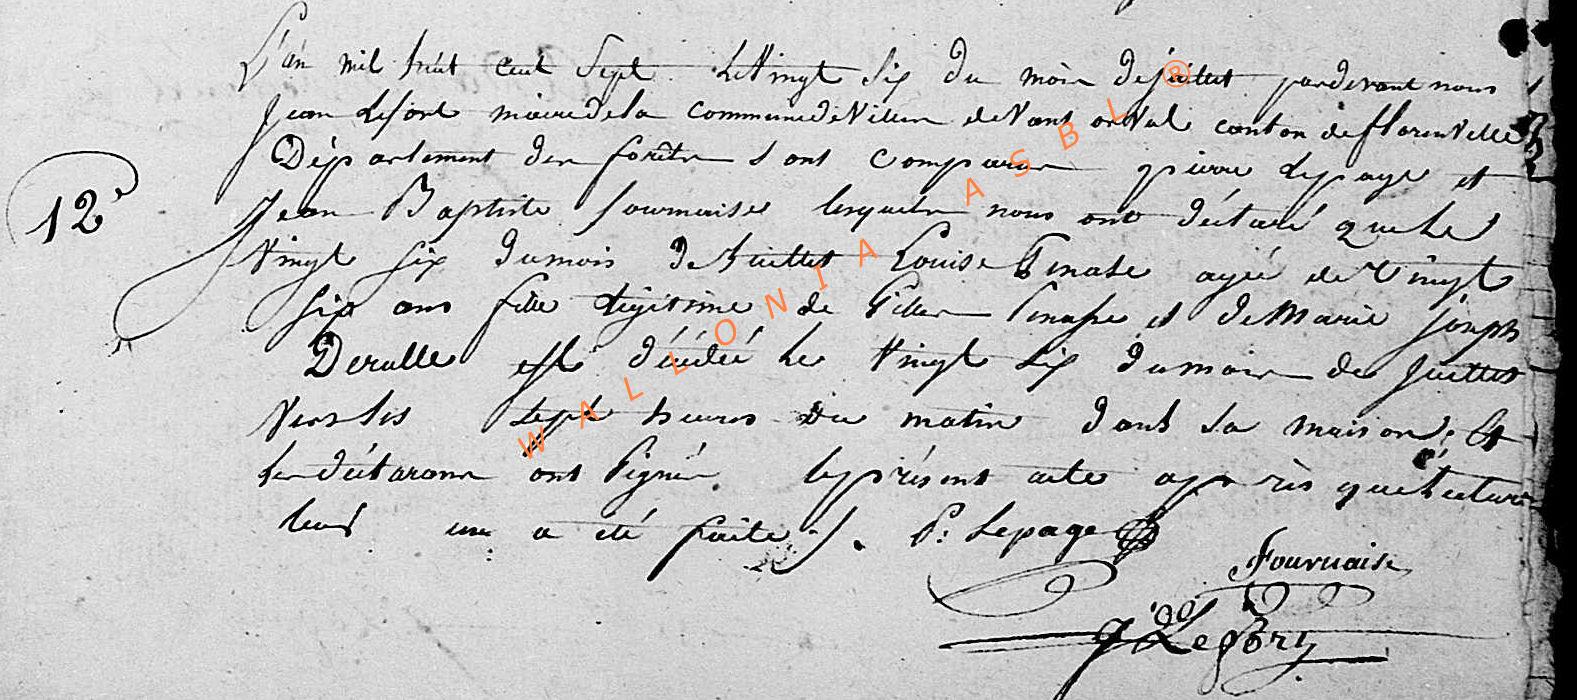 L'an mil huit cent Sept le Vingt Six du mois de juillet pardevant nous
jean Lefort maire de la commune de Villers devant orval canton de florenville
Département des forêts sont comparus pierre Lepage et
12e
jean Baptiste fournaise lesquels nous ont déclaré que le
Vingt six du mois de juillet Louise Pinasse agé de vingt
six ans fille légitime de Giller Pinasse et de Marie joseph
Deralle est décédé le Vingt Six du mois de juillet
vers les sept heures du matin dans sa maison, Et
les déclarans ont signés le présent acte après que lecture
leur en a été faite P: Lepage
Fournaise
j Lefort
WALLONIA ASBL ®